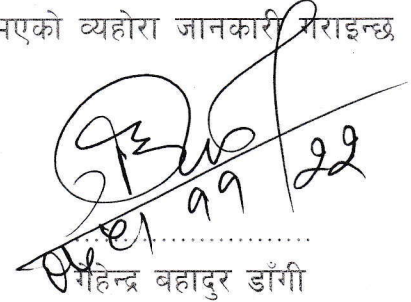 भएको व्यहोरा जानकारी गराइन्छ
११/२२
गेहेन्द्र बहादुर डाँगी